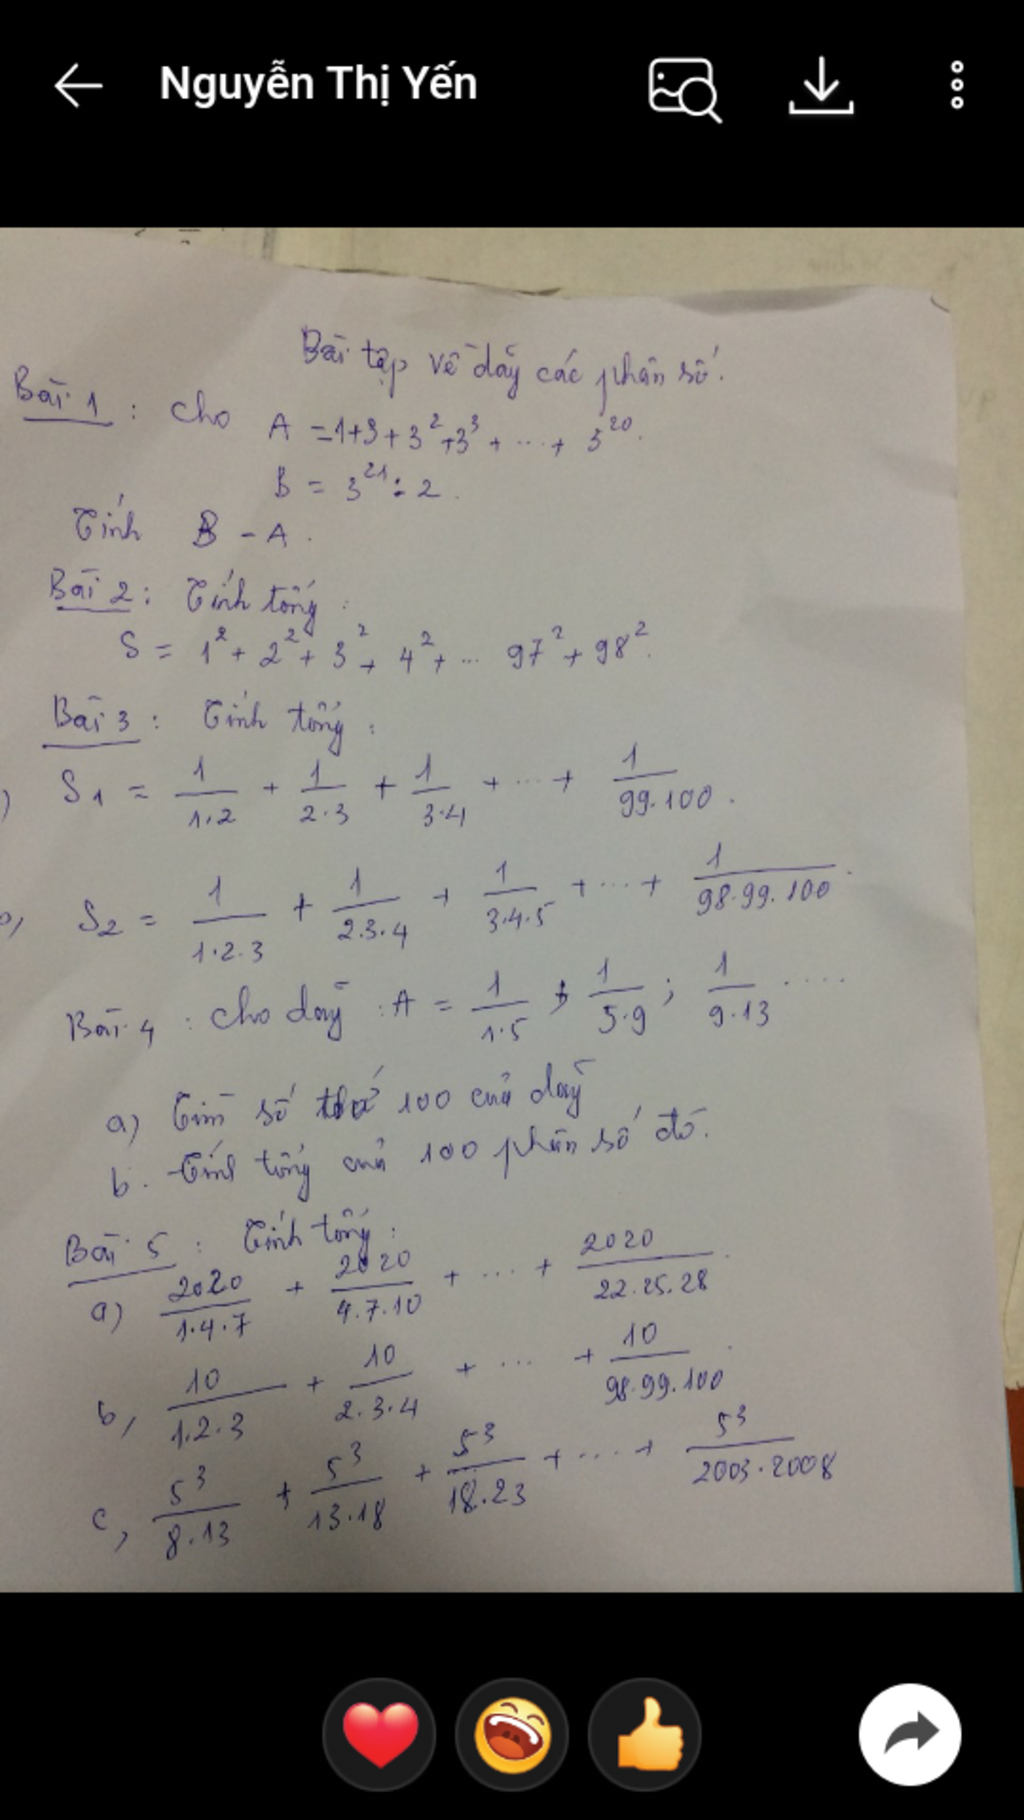 Nguyễn Thị Yến
Bài tập về dãy các phân số.
Bài 1 : Cho A = 1+3+3²+3³+ ... + 3²⁰.
B = 3²¹ : 2.
Tính B - A.
Bài 2 : Tính tổng :
S = 1² + 2² + 3² + 4² + ... 97² + 98².
Bài 3 : Tính tổng :
) S₁ = 1/1·2 + 1/2·3 + 1/3·4 + ... + 1/99·100.
b, S₂ = 1/1·2·3 + 1/2·3·4 + 1/3·4·5 + ... + 1/98·99·100.
Bài 4 : Cho dãy : A = 1/1·5 ; 1/5·9 ; 1/9·13 ....
a) Tìm số thứ 100 của dãy
b. Tính tổng của 100 phân số đó.
Bài 5 : Tính tổng :
a) 2020/1·4·7 + 2020/4·7·10 + ... + 2020/22·25·28.
b, 10/1·2·3 + 10/2·3·4 + ... + 10/98·99·100.
c, 5³/8·13 + 5³/13·18 + 5³/18·23 + .... + 5³/2003·2008